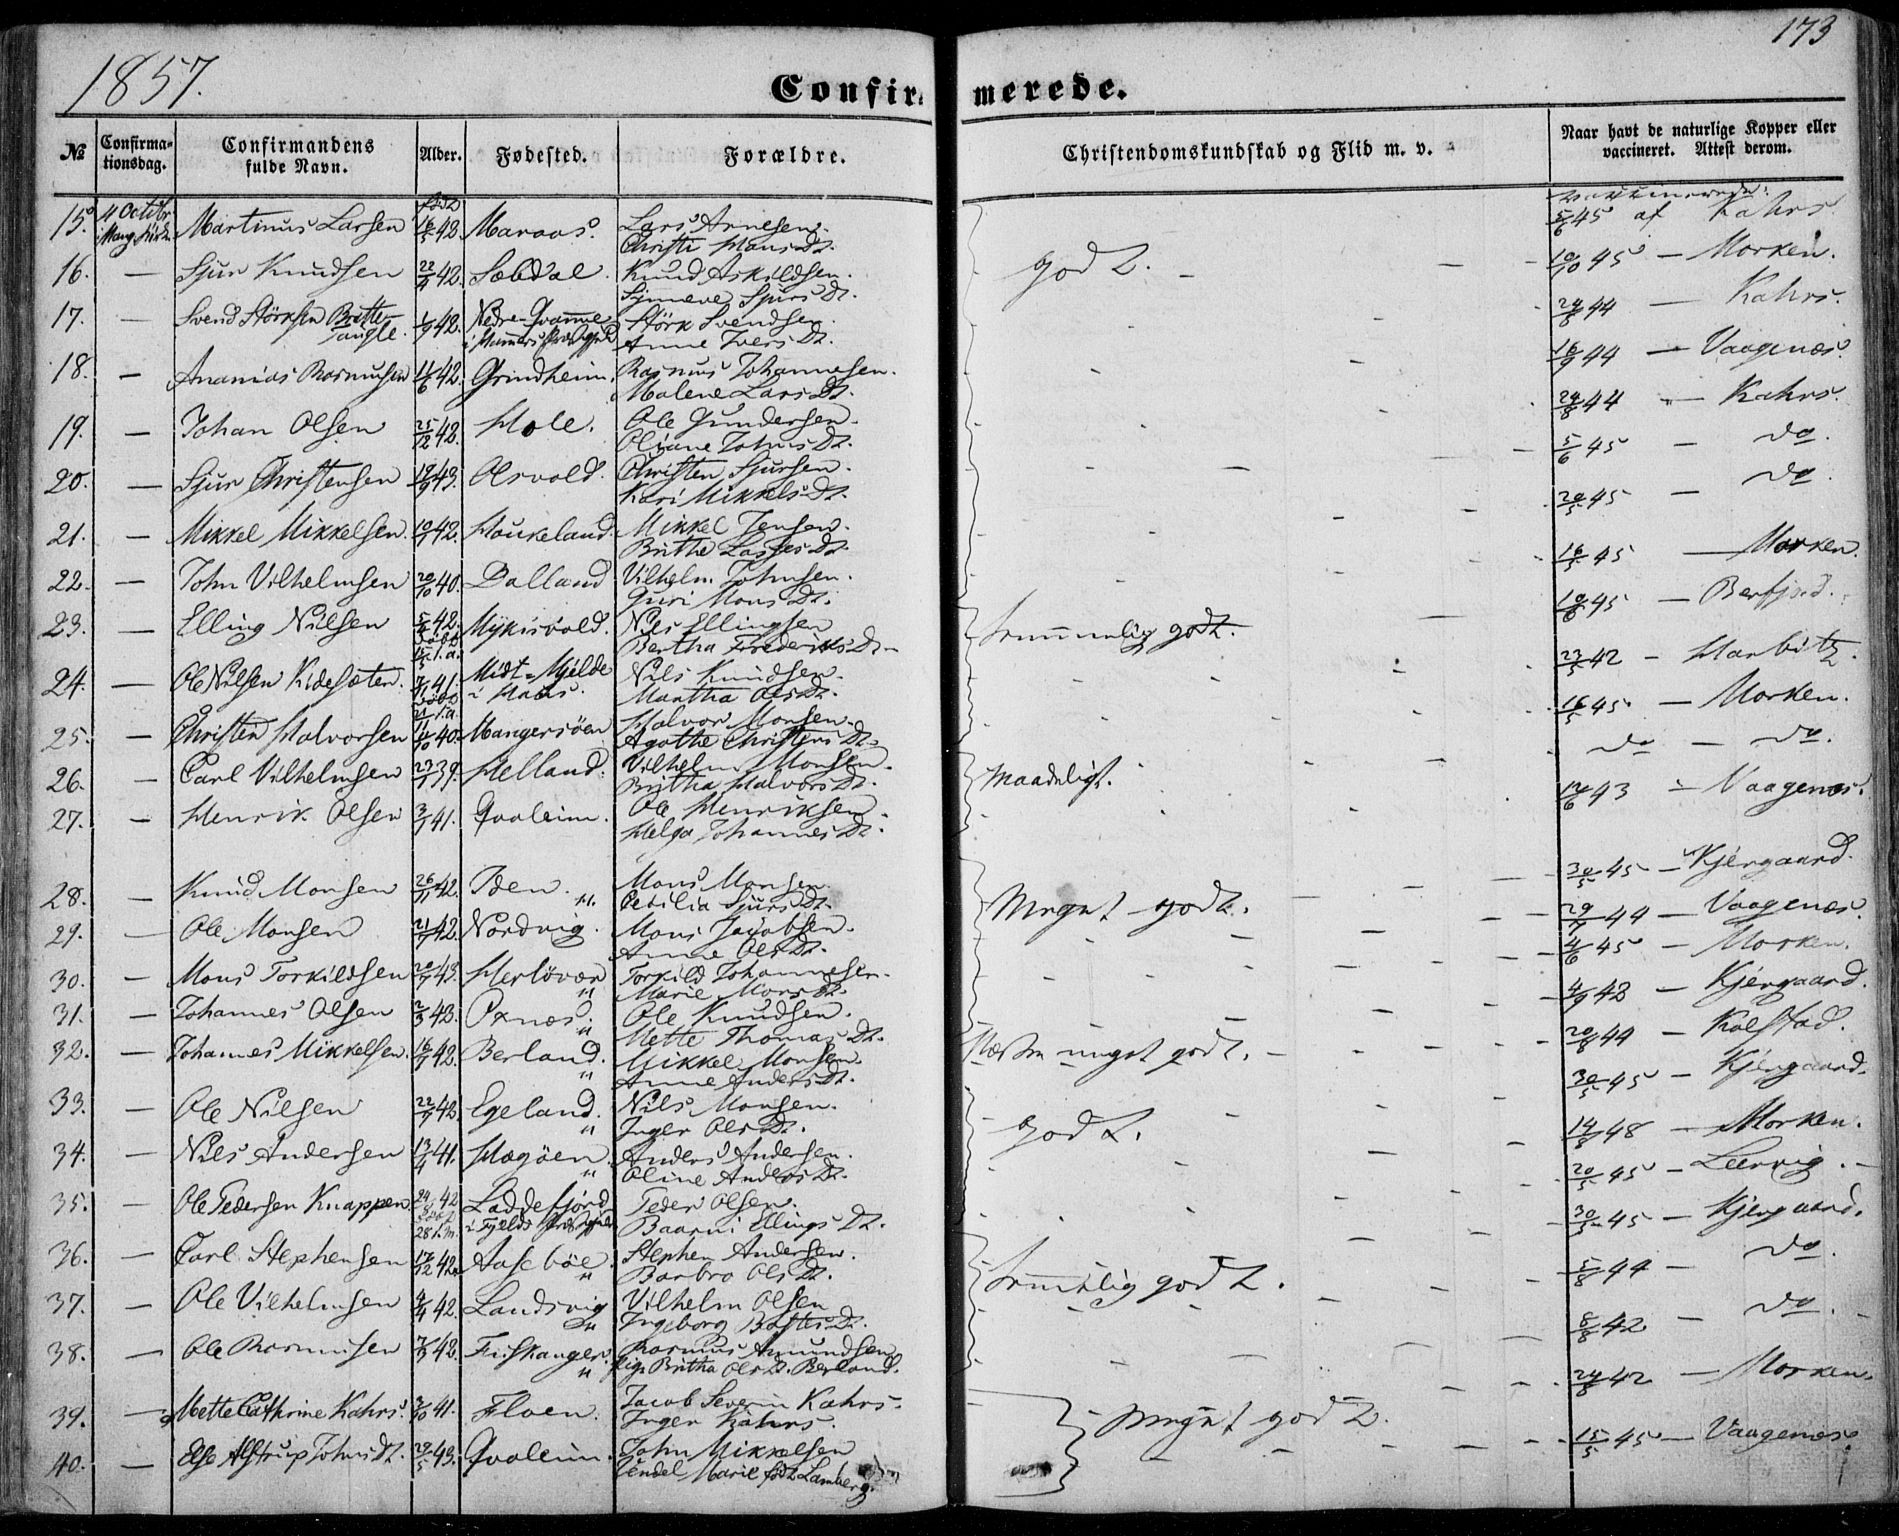 1857.
173
Confirmerede.
№
Confirmationsdag.
Confirmandens fulde Navn.
Alder.
Fødested.
Forældre.
Christendomskundskab og Flid m. v.
Naar havt de naturlige Kopper eller vaccineret. Attest derom.
15. 4 Octbr Mang. Martinus Larsen 42. Maraas. Lars Arnesen. Christi Hans Dt. 5/6 45 af Kahrs
16. — Sjur Knudsen 22/4 42. Sæbdal. Knud Askildsen. Synneve Sjurs Dt. godt. 10/10 45 — Morken.
17. — Svend Størksen 1/9 42. Nedre-Qvamme i Hammers Størk Svendsen. Anne Ivers Dt. 24/8 44 — Kahrs.
18. — Ananias Rasmusen 11/6 42. Grindheim. Rasmus Johannesen. Malene Lars Dt. 16/9 44 — Vaagenæs.
19. — Johan Olsen 25/12 42. Hole. Ole Gundersen. Oliane Johns Dt. 24/8 44 — Kahrs.
20. — Sjur Christensen 19/9 43. Olsvold. Christen Sjursen. Kari Mikkels Dt. 5/6 45 — do.
21. — Mikkel Mikkelsen. 42. Haukeland. Mikkel Jensen. Brithe Lasses Dt. 20/5 45 — do
22. — John Vilhelmsen 20/10 40. Dalland Vilhelm Johnsen. Guri Mons Dt. 16/5 45 — Morken.
23. — Elling Nilsen 42. Mykisvold. Nils Ellingsen Bertha Frederiks Dt. Temmelig godt. 10/6 45 —
24. — Ole Nilsen Kidesæter. 41. Midt-Mjelde i Haus. Nils Knudsen. Martha Ols Dt. 23/5 42 — Harbitz.
25. — Christen Halvorsen 11/10 40. Mangersöen Halvor Monsen. Agathe Christens Dt. 16/5 45 — Morken.
26. — Carl Vilhelmsen 39. Helland. Vilhelm Monsen. Britha Halvors Dt. Maadeligt. do — do.
27. — Henrik Olsen 41. Qvaleim. Ole Henriksen. Helga Johannes Dt. 12/6 43 — Vaagenæs.
28. — Knud Monsen 26/11 42. Io­en. Mons Monsen. Cecilia Sjurs Dt. Meget godt. 30/5 45 — Kjergaard.
29. — Ole Monsen 42. Nordvig. Mons Jacobsen. Anne Ols Dt. 44 — Vaagenæs.
30. — Mons Torkildsen 43. Herløvær Torkild Johannesen. Marie Mons Dt. 4/6 45 — Morken.
31. — Johannes Olsen 2/3 43. Oxnæs. Ole Knudsen. Mette Thomas Dt. 4/9 43 — Kjergaard.
32. — Johannes Mikkelsen. 42. Berland. Mikkel Monsen. Anne Anders Dt. Næsten meget godt. 20/8 44 — Kolstad.
33. — Ole Nilsen 42. Egeland. Nils Monsen. Inger Ols Dt. godt. 30/5 45 — Kjergaard.
34. — Nils Andersen 13/4 41. Hægöen. Anders Andersen. Oline Anders Dt. 48 — Morken.
35. — Ole Pedersen Knappen. 42 Laddefjord i Fjelds Peder Olsen. Baarni Ellings Dt. 20/5 45 — Leervig.
36. — Carl Stephensen 17/12 42. Aasebøe. Stephen Andersen. Barbro Ols Dt. 30/5 45 — Kjergaard.
37. — Ole Vilhelmsen 4/4 42. Landsvig Vilhelm Olsen Ingeborg Dt. Temmelig godt. 5/8 44 — do.
38. — Ole Rasmusen 42. Fiskanger. Rasmus Amundsen Pige Britha Ols Dt. Berland. 8/8 42 — do.
39. — Mette Cathrine Kahrs. 3/10 41. Floen. Jacob Severin Kahrs. Inger Kahrs. Meget godt. 24/8 42 — Morken.
40. — Else Astrup Johns Dt. 29/5 43. Qvaleim. John Mikkelsen Vendel Marie født Lamberg. 15/5 45 — Vaagenæs.